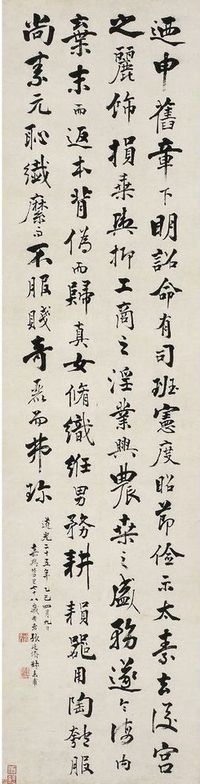 迺申舊章下明詔命有司班憲度昭節儉示太素去後宮
之麗飾損乘輿抑工商之淫業興農桑之盛務遂令海內
棄末而返本背偽而歸真女脩織紝男務耕器用陶匏服
尚素元恥纖而不服賤奇麗而弗珍
道光二十五年乙巳四月九日
嘉興竹里七十八歲老者張廷濟叔未甫